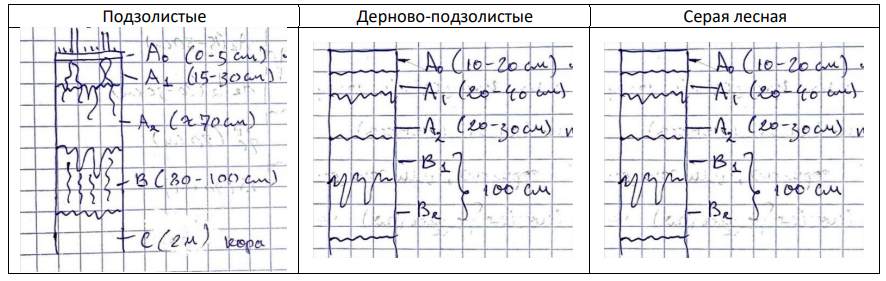 Подзолистые
Дерново-подзолистые
Серая лесная
A₀ (0-5 см)
A₁ (15-30 см)
A₂ (x70 см)
B (30-100 см)
C (2м) кора
A₀ (10-20 см)
A₁ (20-40 см)
A₂ (20-30 см)
B₁
100 см
B₂
A₀ (10-20 см)
A₁ (20-40 см)
A₂ (20-30 см)
B₁
100 см
B₂